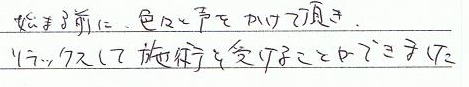 始まる前に、色々と声をかけて頂き、
リラックスして施術を受けることができました